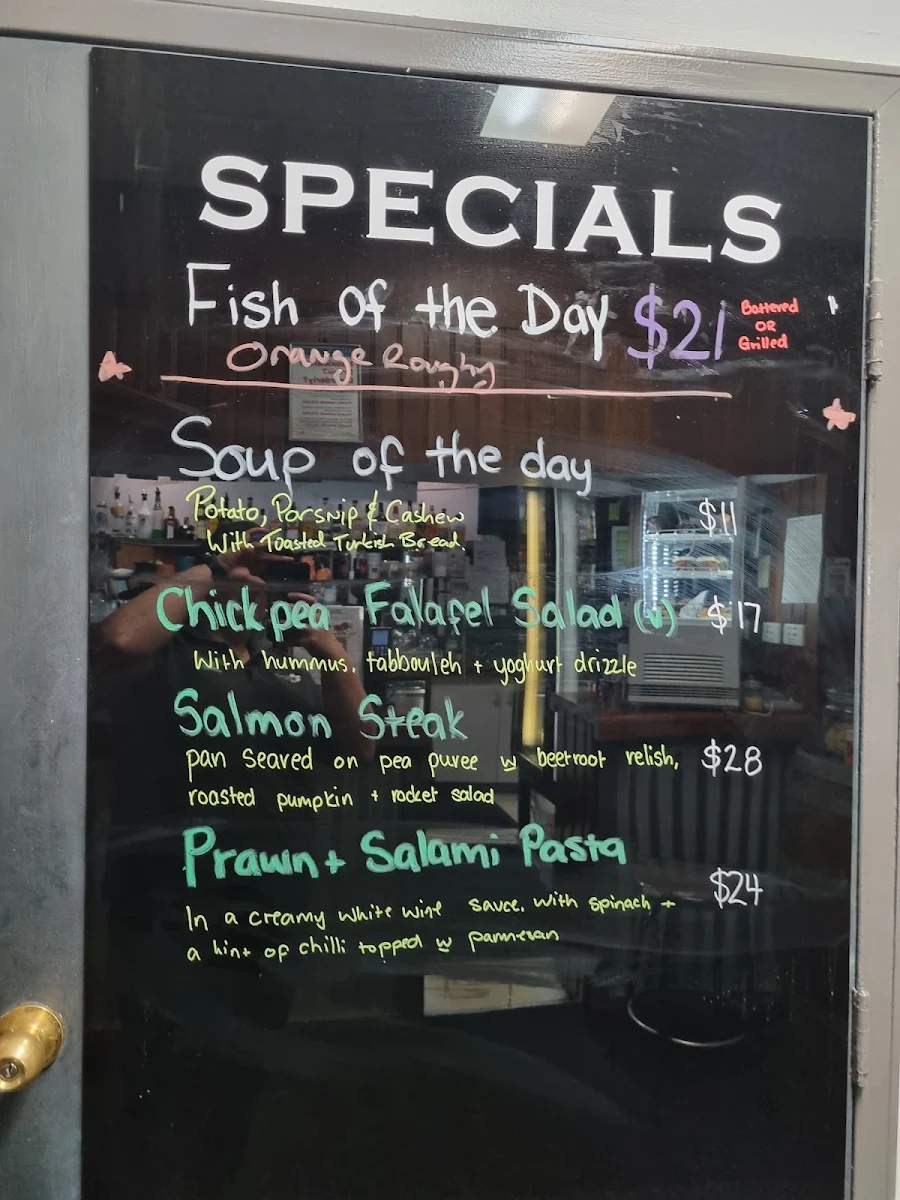 SPECIALS
Fish of the Day $21 Battered OR Grilled
Orange Roughy
Soup of the day
Potato, Parsnip & Cashew $11
With Toasted Turkish Bread.
Chickpea Falafel Salad (v) $17
With hummus, tabbouleh + yoghurt drizzle
Salmon Steak
pan seared on pea puree w beetroot relish, $28
roasted pumpkin + rocket salad
Prawn + Salami Pasta
$24
In a creamy white wine sauce. with spinach +
a hint of chilli topped w parmesan